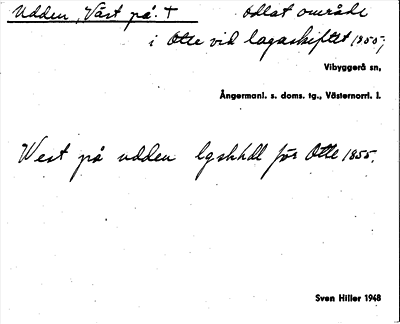 Udden, Väst på. † odlat område
i Otte vid lagaskiftet 1855;
Vibyggerå sn,
Ångermanl. s. doms. tg., Västernorrl. l.
West på udden lgskhdl för Otte 1855.
Sven Hiller 1948